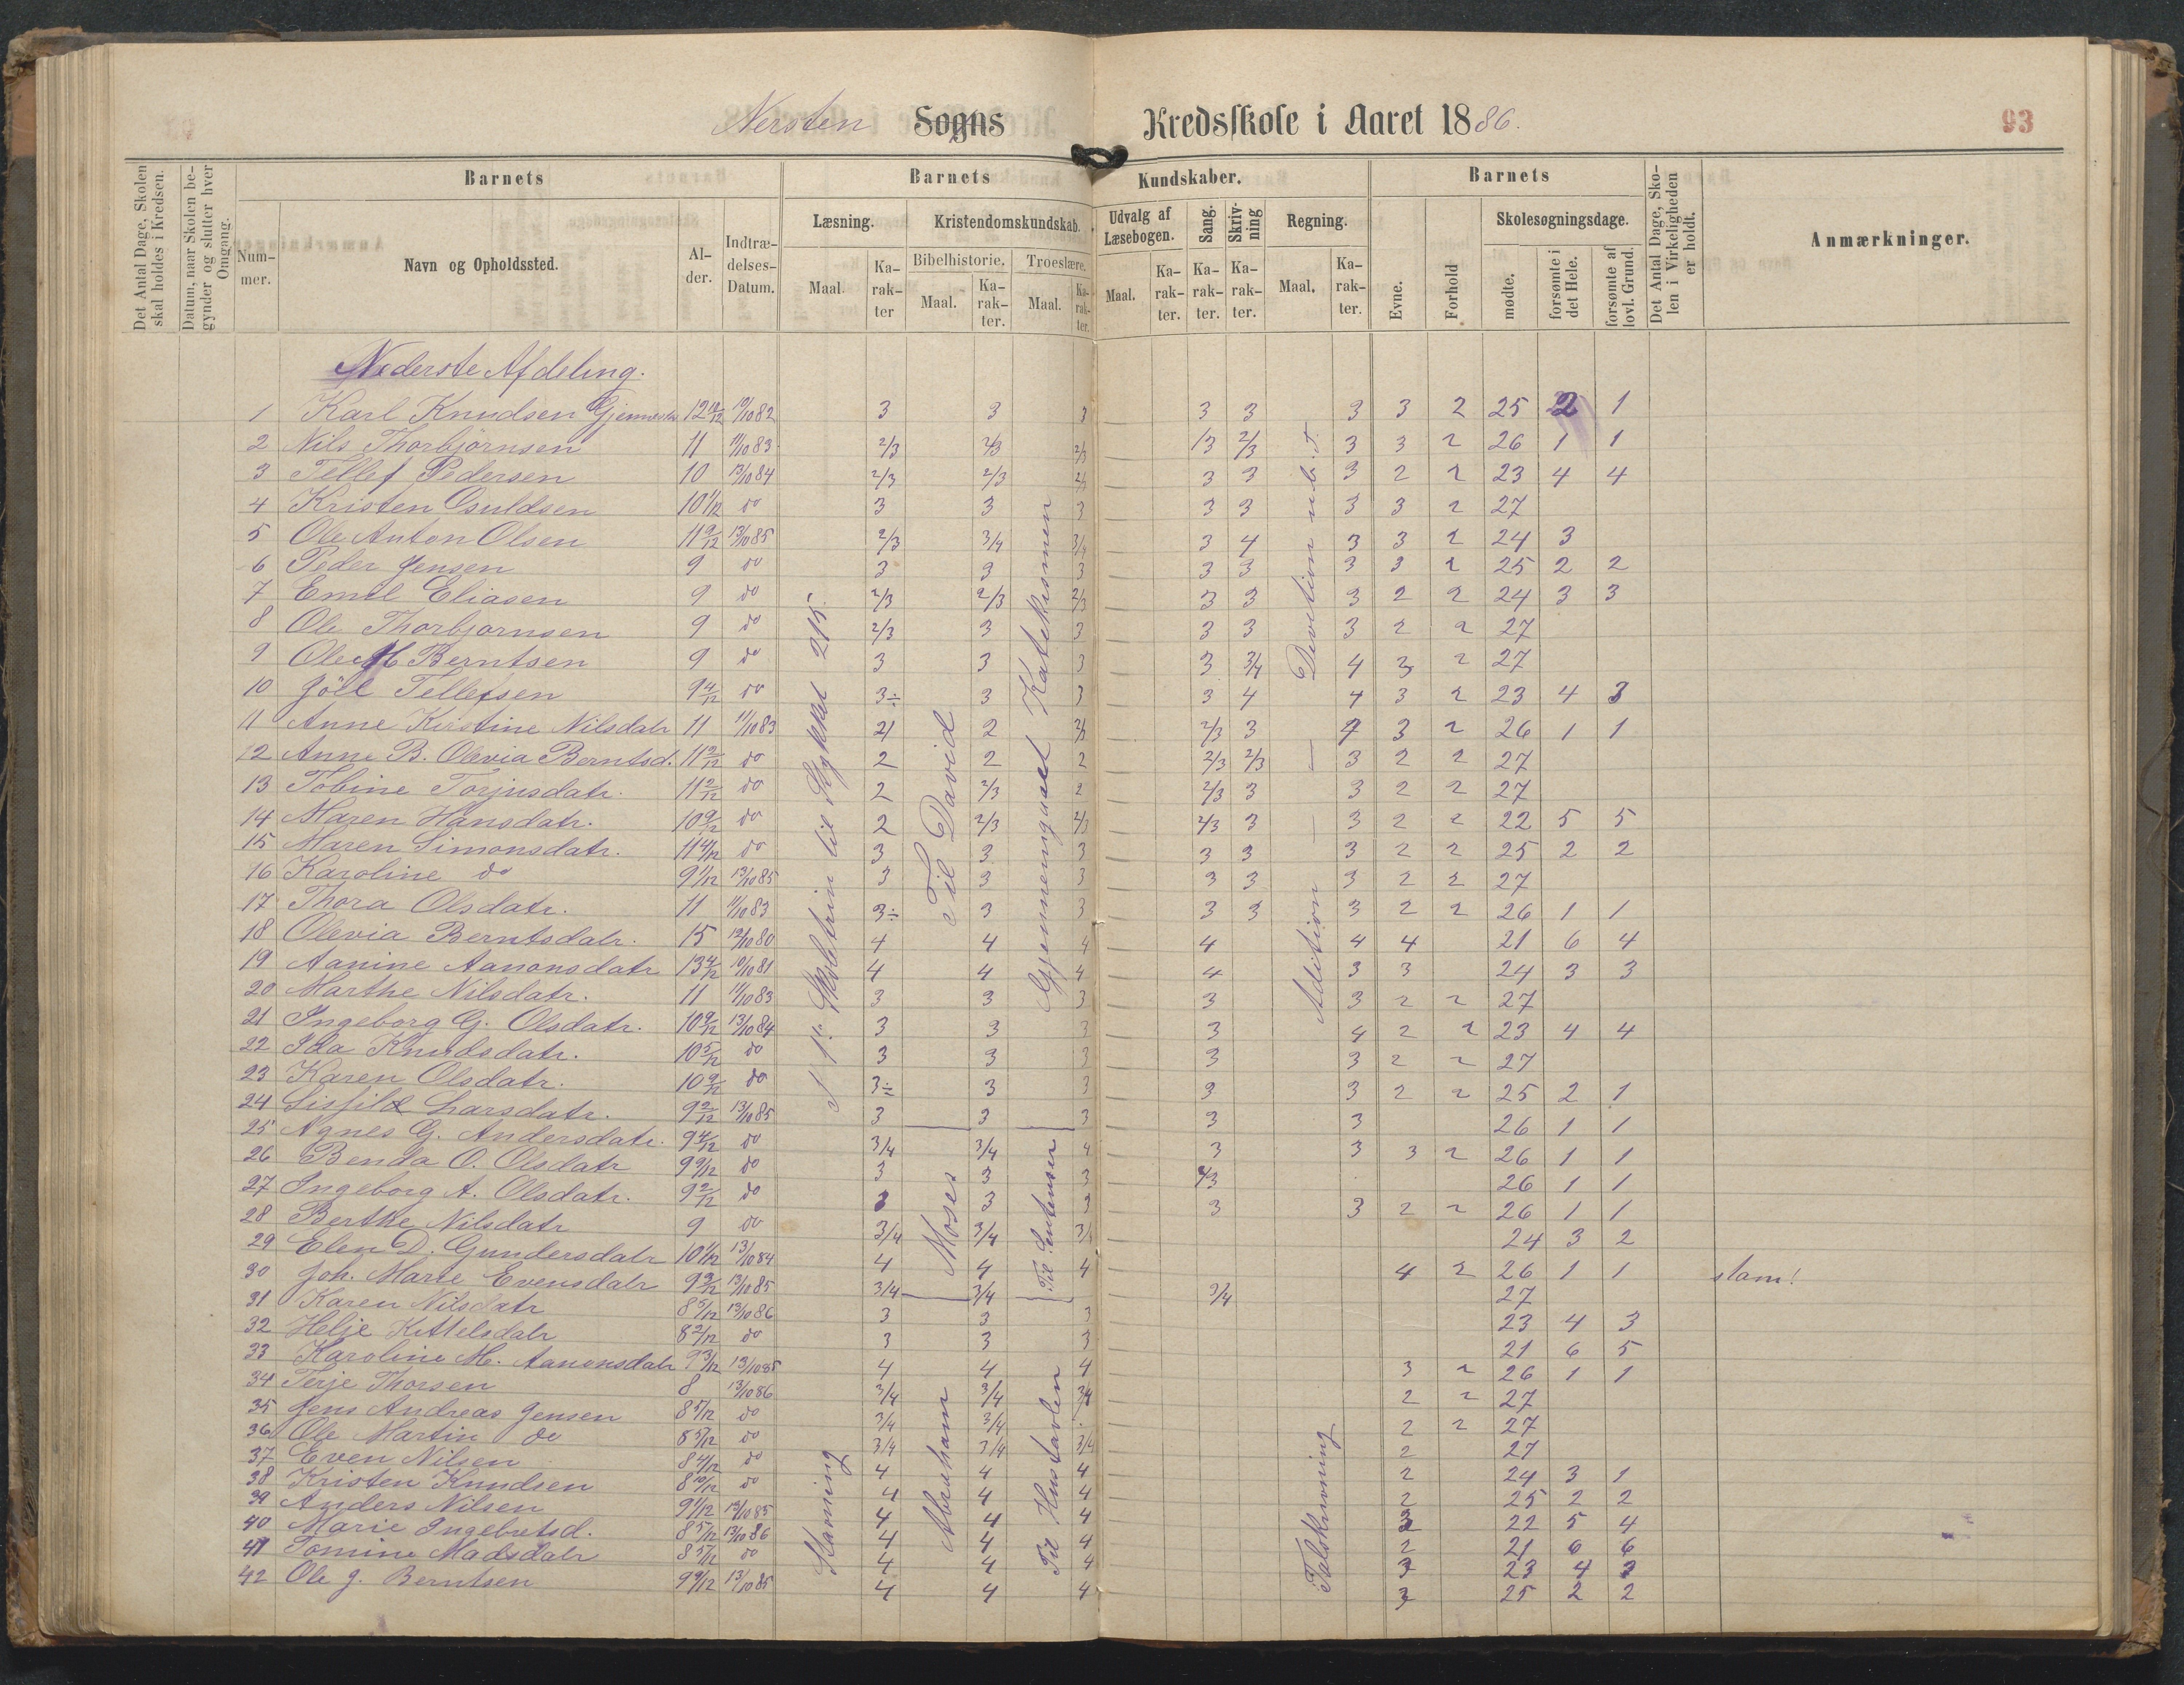 Nersten Sogns Kredsskole i Aaret 1886. 93
Det Antal Dage, Skolen skal holdes i Kredsen.
Datum, naar Skolen begynder og slutter hver Omgang.
Barnets
Nummer.
Navn og Opholdssted.
Alder.
Indtrædelses-Datum.
Barnets Kundskaber.
Læsning.
Maal.
Karakter
Kristendomskundskab.
Bibelhistorie.
Maal.
Karakter.
Troeslære.
Maal.
Karakter.
Udvalg af Læsebogen.
Maal.
Karakter.
Sang.
Karakter.
Skrivning
Karakter.
Regning.
Maal.
Karakter.
Barnets
Evne.
Forhold
Skolesøgningsdage.
mødte.
forsømte i det Hele.
forsømte af lovl. Grund.
Det Antal Dage, Skolen i Virkeligheden er holdt.
Anmærkninger.
Nederste Afdeling.
1 Karl Knudsen 12 10/12 10/10 82 3 3 3 3 3 3 3 2 25 2 1
2 Nils Thorbjørnsen 11 11/10 83 2/3 2/3 2/3 — 3 2/3 3 3 2 26 1 1
3 Tellef Pedersen 10 13/10 84 2/3 2/3 2/3 — 3 3 3 2 2 23 4 4
4 Kristen Osuldsen 10 1/12 do 3 3 3 — 3 3 3 3 2 27
5 Ole Anton Olsen 11 9/12 13/10 85 2/3 3/4 3/4 — 3 4 3 3 2 24 3
6 Peder Jensen 9 do 3 3 3 — 3 3 3 3 2 25 2 2
7 Emil Eliasen 9 do 2/3 2/3 2/3 — 3 3 3 2 2 24 3 3
8 Ole Thorbjørnsen 9 do 2/3 3 3 — 3 3 3 2 2 27
9 Ole M Berntsen 9 do 3 3 3 — 3 3/4 4 3 2 27
10 Joll Tellefsen 9 4/12 do 3÷ 3 3 — 3 4 4 3 2 23 4 3
11 Anne Kirstine Nilsdatr 11 11/10 83 2 2 2/3 — 2/3 3 4 3 2 26 1 1
12 Anne B. Olevia Berntsd. 11 2/12 do 2 2 2 — 2/3 2/3 3 2 2 27
13 Tobine Torjusdatr. 11 2/12 do 2 2/3 2 — 2/3 3 3 2 2 27
14 Maren Hansdatr. 10 9/12 do 2 2/3 2/3 — 2/3 3 3 2 2 22 5 5
15 Maren Simonsdatr. 11 4/12 do 3 3 3 — 3 3 3 2 2 25 2 2
16 Karoline do 9 1/12 13/10 85 3 3 3 — 3 3 3 2 2 27
17 Thora Olsdatr. 11 11/10 83 3÷ 3 3 — 3 3 3 2 2 26 1 1
18 Olevia Berntsdatr. 15 12/10 80 4 4 4 — 4 4 4 21 6 4
19 Aanine Aanonsdatr 13 4/12 10/10 81 4 4 4 — 4 3 3 24 3 3
20 Marthe Nilsdatr. 11 11/10 83 3 3 3 — 3 3 2 2 27
21 Ingeborg G. Olsdatr. 10 9/12 13/10 84 3 3 3 — 3 4 2 2 23 4 4
22 Ida Knudsdatr. 10 5/12 do 3 3 3 — 3 3 2 2 27
23 Karen Olsdatr. 10 9/12 do 3÷ 3 3 — 3 3 2 2 25 2 1
24 Larsdatr. 9 2/12 13/10 85 3 3 3 — 3 3 26 1 1
25 Agnes G. Andersdatr. 9 4/12 do 3/4 3/4 4 — 3 3 3 2 26 1 1
26 Benda O. Olsdatr 9 9/12 do 3 3 3 — 2/3 26 1 1
27 Ingeborg A. Olsdatr. 9 2/12 do 3 3 3 — 3 3 2 2 26 1 1
28 Berthe Nilsdatr 9 do 3/4 3/4 3/4 — 24 3 2
29 Elen D. Gundersdatr 10 1/12 13/10 84 4 4 4 — 4 2 26 1 1 slam!
30 Joh. Marie Evensdatr 9 3/12 13/10 85 3/4 3/4 — 3/4 27
31 Karen Nilsdatr 8 5/12 13/10 86 3 3 3 — 23 4 3
32 Helje Kittelsdatr 8 2/12 do 3 3 3 — 21 6 5
33 Karoline M. Aanonsdatr 9 3/12 13/10 85 4 4 4 — 3 2 26 1 1
34 Terje Thorsen 8 13/10 86 3/4 3/4 3/4 — 2 2 27
35 Jens Andreas Jensen 8 5/12 do 3/4 3/4 — 2 2 27
36 Ole Martin do 8 5/12 do 3/4 3/4 3/4 — 2 27
37 Even Nilsen 8 4/12 do 4 4 4 — 2 24 3 1
38 Kristen Knudsen 8 10/12 do 4 4 4 — 2 25 2 2
39 Anders Nilsen 9 1/12 13/10 85 4 4 4 — 3 22 5 4
40 Marie Ingebretsd. 8 5/12 13/10 86 4 4 4 — 2 21 6 6
41 Tomine Madsdatr 8 5/12 do 4 4 4 — 3 23 4 3
42 Ole J. Berntsen 9 9/12 13/10 85 4 4 4 — 3 25 2 2
til Stykket 215.
Til David
Gjennemgaaet Katekismen
Moses
Til Sentenser
Stavning
Abraham
Til Hustavlen
Adition
Talskrivning